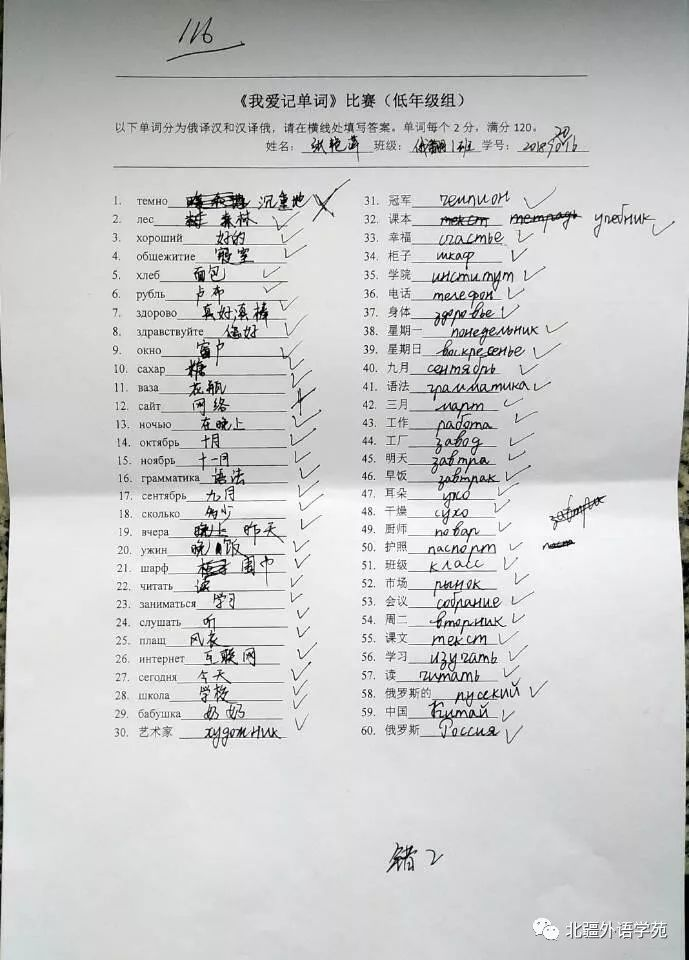 116
《我爱记单词》比赛（低年级组）
以下单词分为俄译汉和汉译俄，请在横线处填写答案。单词每个2分，满分120。
姓名： 张艳萍 班级： 俄翻1班 学号：
1. темно 沉重地
2. лес 森林
3. хороший 好的
4. общежитие 寝室
5. хлеб 面包
6. рубль 卢布
7. здорово 真好真棒
8. здравствуйте 您好
9. окно 窗户
10. сахар 糖
11. ваза 花瓶
12. сайт 网络
13. ночью 在晚上
14. октябрь 十月
15. ноябрь 十一月
16. грамматика 语法
17. сентябрь 九月
18. сколько 多少
19. вчера 晚上 昨天
20. ужин 晚饭
21. шарф 围巾
22. читать 读
23. заниматься 学习
24. слушать 听
25. плащ 风衣
26. интернет 互联网
27. сегодня 今天
28. школа 学校
29. бабушка 奶奶
30. 艺术家 художник
31. 冠军 чемпион
32. 课本 текст тетрадь учебник
33. 幸福 счастье
34. 柜子 шкаф
35. 学院 институт
36. 电话 телефон
37. 身体 здоровье
38. 星期一 понедельник
39. 星期日 воскресенье
40. 九月 сентябрь
41. 语法 грамматика
42. 三月 март
43. 工作 работа
44. 工厂 завод
45. 明天 завтра
46. 早饭 завтрак
47. 耳朵 ухо
48. 干燥 сухо
49. 厨师 повар
завтрак
50. 护照 паспорт
51. 班级 класс
52. 市场 рынок
53. 会议 собрание
54. 周二 вторник
55. 课文 текст
56. 学习 изучать
57. 读 читать
58. 俄罗斯的 русский
59. 中国 Китай
60. 俄罗斯 Россия
错2
北疆外语学苑